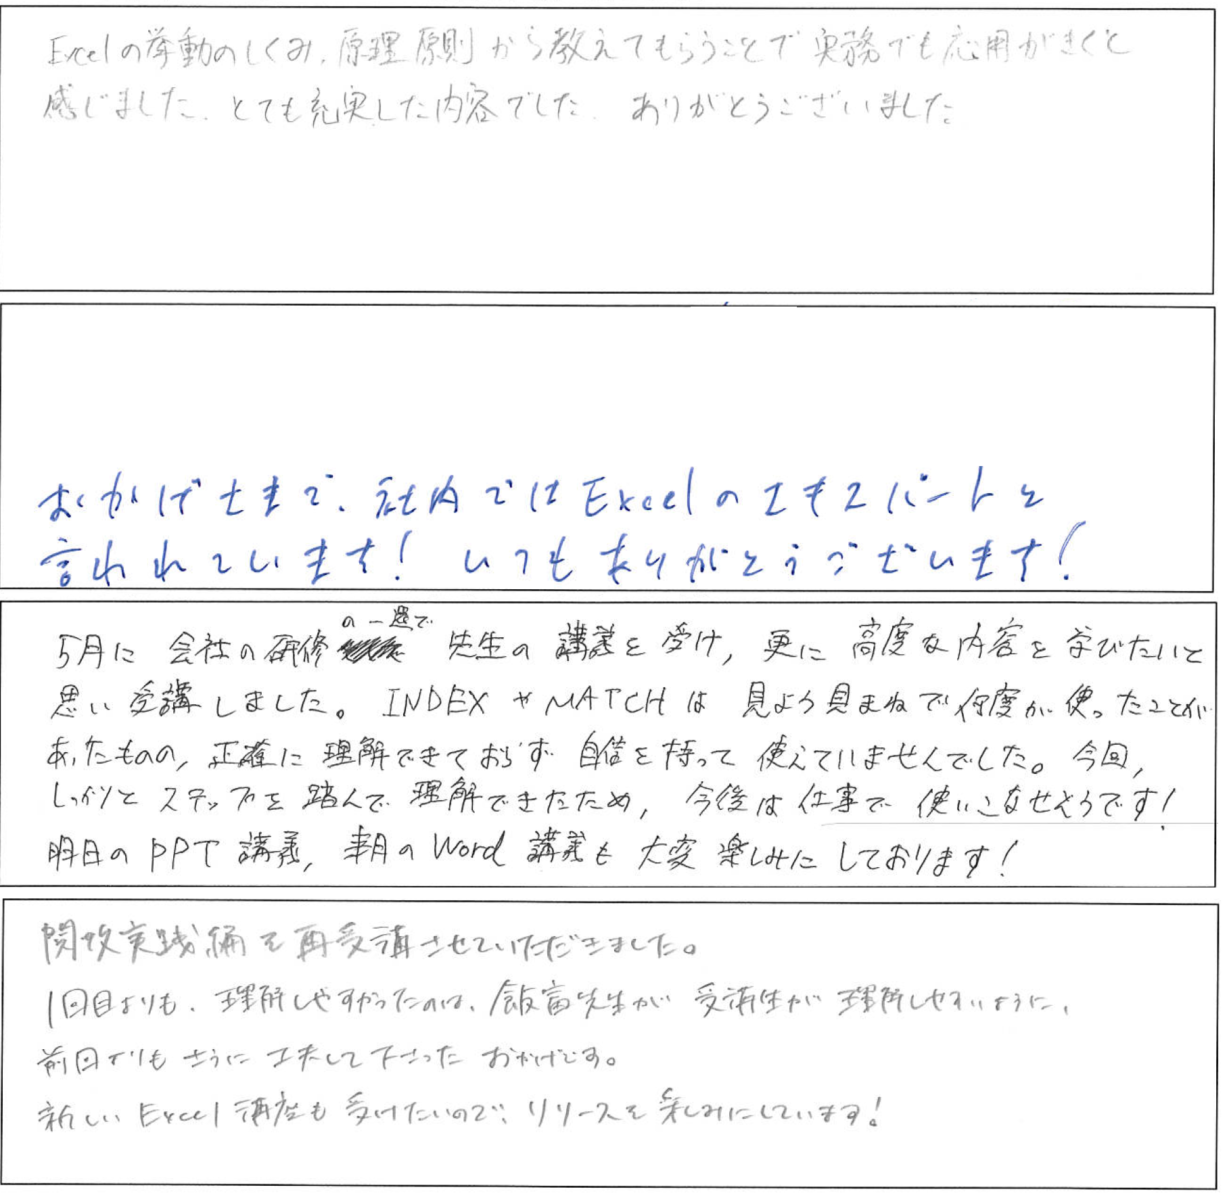 Excelの挙動のしくみ、原理原則から教えてもらうことで実務でも応用がきくと
感じました。とても充実した内容でした。ありがとうございました。
おかげさまで、社内ではExcelのエキスパートと
言われています！いつもありがとうございます！
5月に会社の研修の一環で先生の講義を受け，更に高度な内容を学びたいと
思い受講しました。INDEXやMATCHは見よう見まねで何度か使ったことが
あったものの，正確に理解できておらず自信を持って使えていませんでした。今回，
しっかりとステップを踏んで理解できたため，今後は仕事で使いこなせそうです！
明日のPPT講義，来月のWord講義も大変楽しみにしております！
関数実践編を再受講させていただきました。
1回目よりも、理解しやすかったのは、飯富先生が受講生が理解しやすいように、
前回よりもさらに工夫して下さったおかげです。
新しいExcel講座も受けたいので、リリースを楽しみにしています！